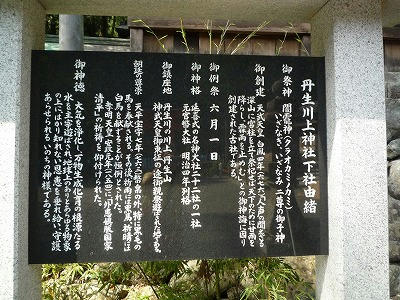 丹生川上神社下社由緒
御祭神 闇龗神(クラオカミノカミ)
いざなぎ、いざなみ二尊の御子神
御創建 天武天皇白鳳四年(六七六)「人声の聞えざる
深山に宮柱を立て祭祀せば天下のために甘雨を
降らし霖雨を止めむ」との御神誨に因り
創建された古社である。
御例祭 六月一日
御神格 延喜式の名神大社二十二社の一社
元官幣大社 明治四年列格
御鎮座地 丹生川の川上丹生山
神武天皇御東征の途御親祭遊ばされた所である。
朝廷の尊崇 天平宝字七年(七六三)幣帛の外、特に黒毛の
馬を奉献される。その後祈雨には黒馬、祈晴は
白馬を献ずることが恒例とされた。
孝明天皇安政元年(一八五四)「外患攘服国家
清平」の祈祷を仰付けられた。
御神徳 大気を浄化し万物生成化育の根源たる
水を主宰遊ばされ地球上のありとあらゆる物象
の上にはかり知れない恩恵を垂れ給い守護
あらせられるいのちの神様である。